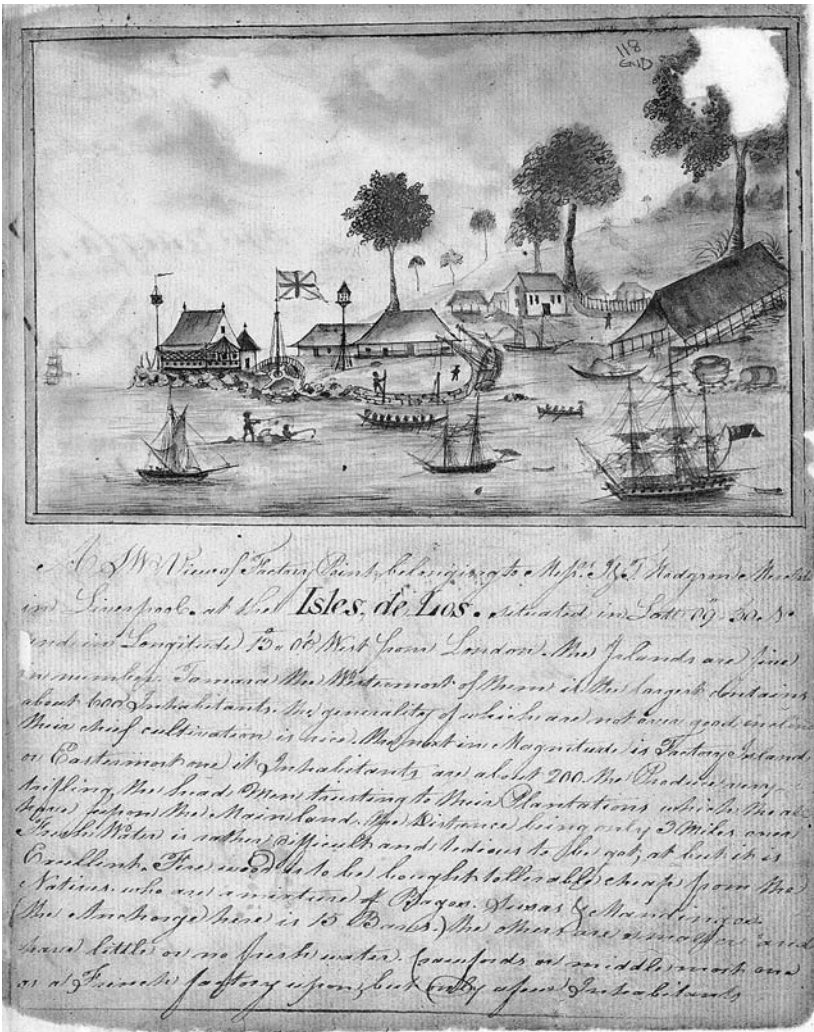 118
END
A SW View of Factory Point, belonging to Messrs. J & T Hodgson Merchts
in Liverpool. at the Isles, de Los. situated in Latt 09..30. N
and in Longitude West from London. the Islands are five
in number. Tamara the Westermost of them is the largest Contains
about 600 Inhabitants. the generality of which are not over good
their chief cultivation is rice. the next in Magnitude is Factory Island
or Eastermost one it Inhabitants are about 200. the Produce very
trifling, the head Men trusting to their Plantations which the
have upon the Mainland. the Distance being only 3 Miles over
Fresh Water is rather difficult and tedious to be got, at but it is
Excellent. Fire wood is to be bought tollerable cheap from the
Natives. who are a mixture of Bagos. Susas & Mandingoe
(the Anchorge here is 15 Barrs.) the others are and
have little or no fresh water. Crawfords or middlemost one
as a French factory upon, but only a few Inhabitants